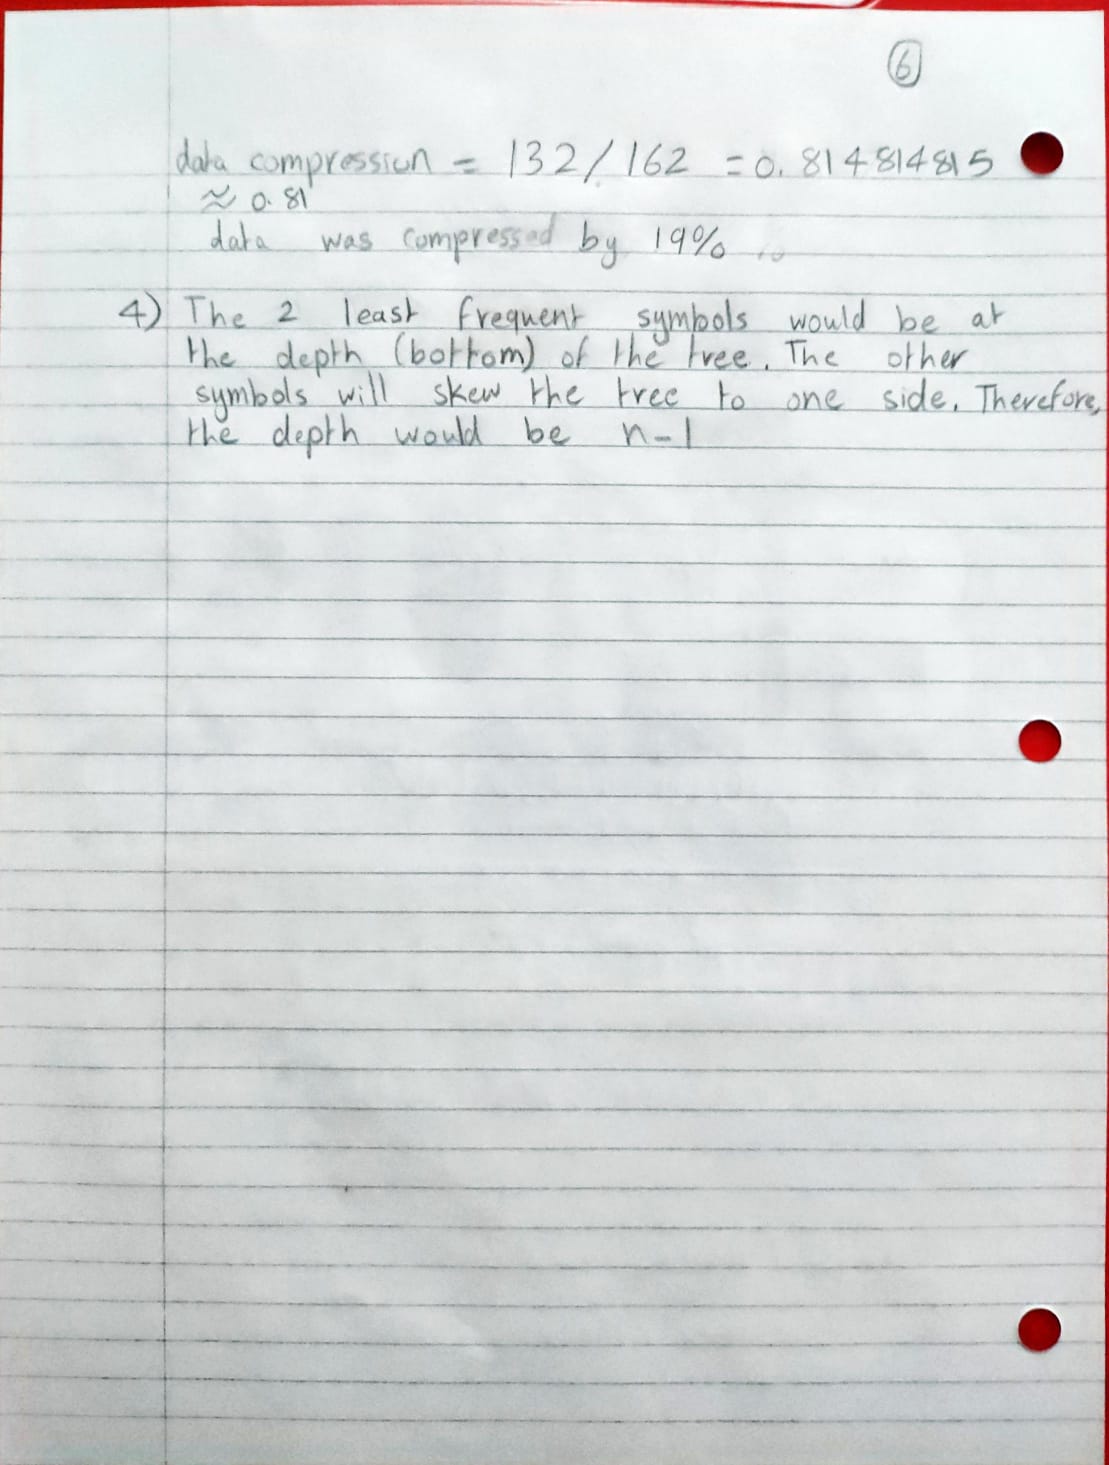 6
data compression = 132/162 = 0.814814815
≈ 0.81
data was compressed by 19%
4) The 2 least frequent symbols would be at
the depth (bottom) of the tree. The other
symbols will skew the tree to one side. Therefore,
the depth would be n-1